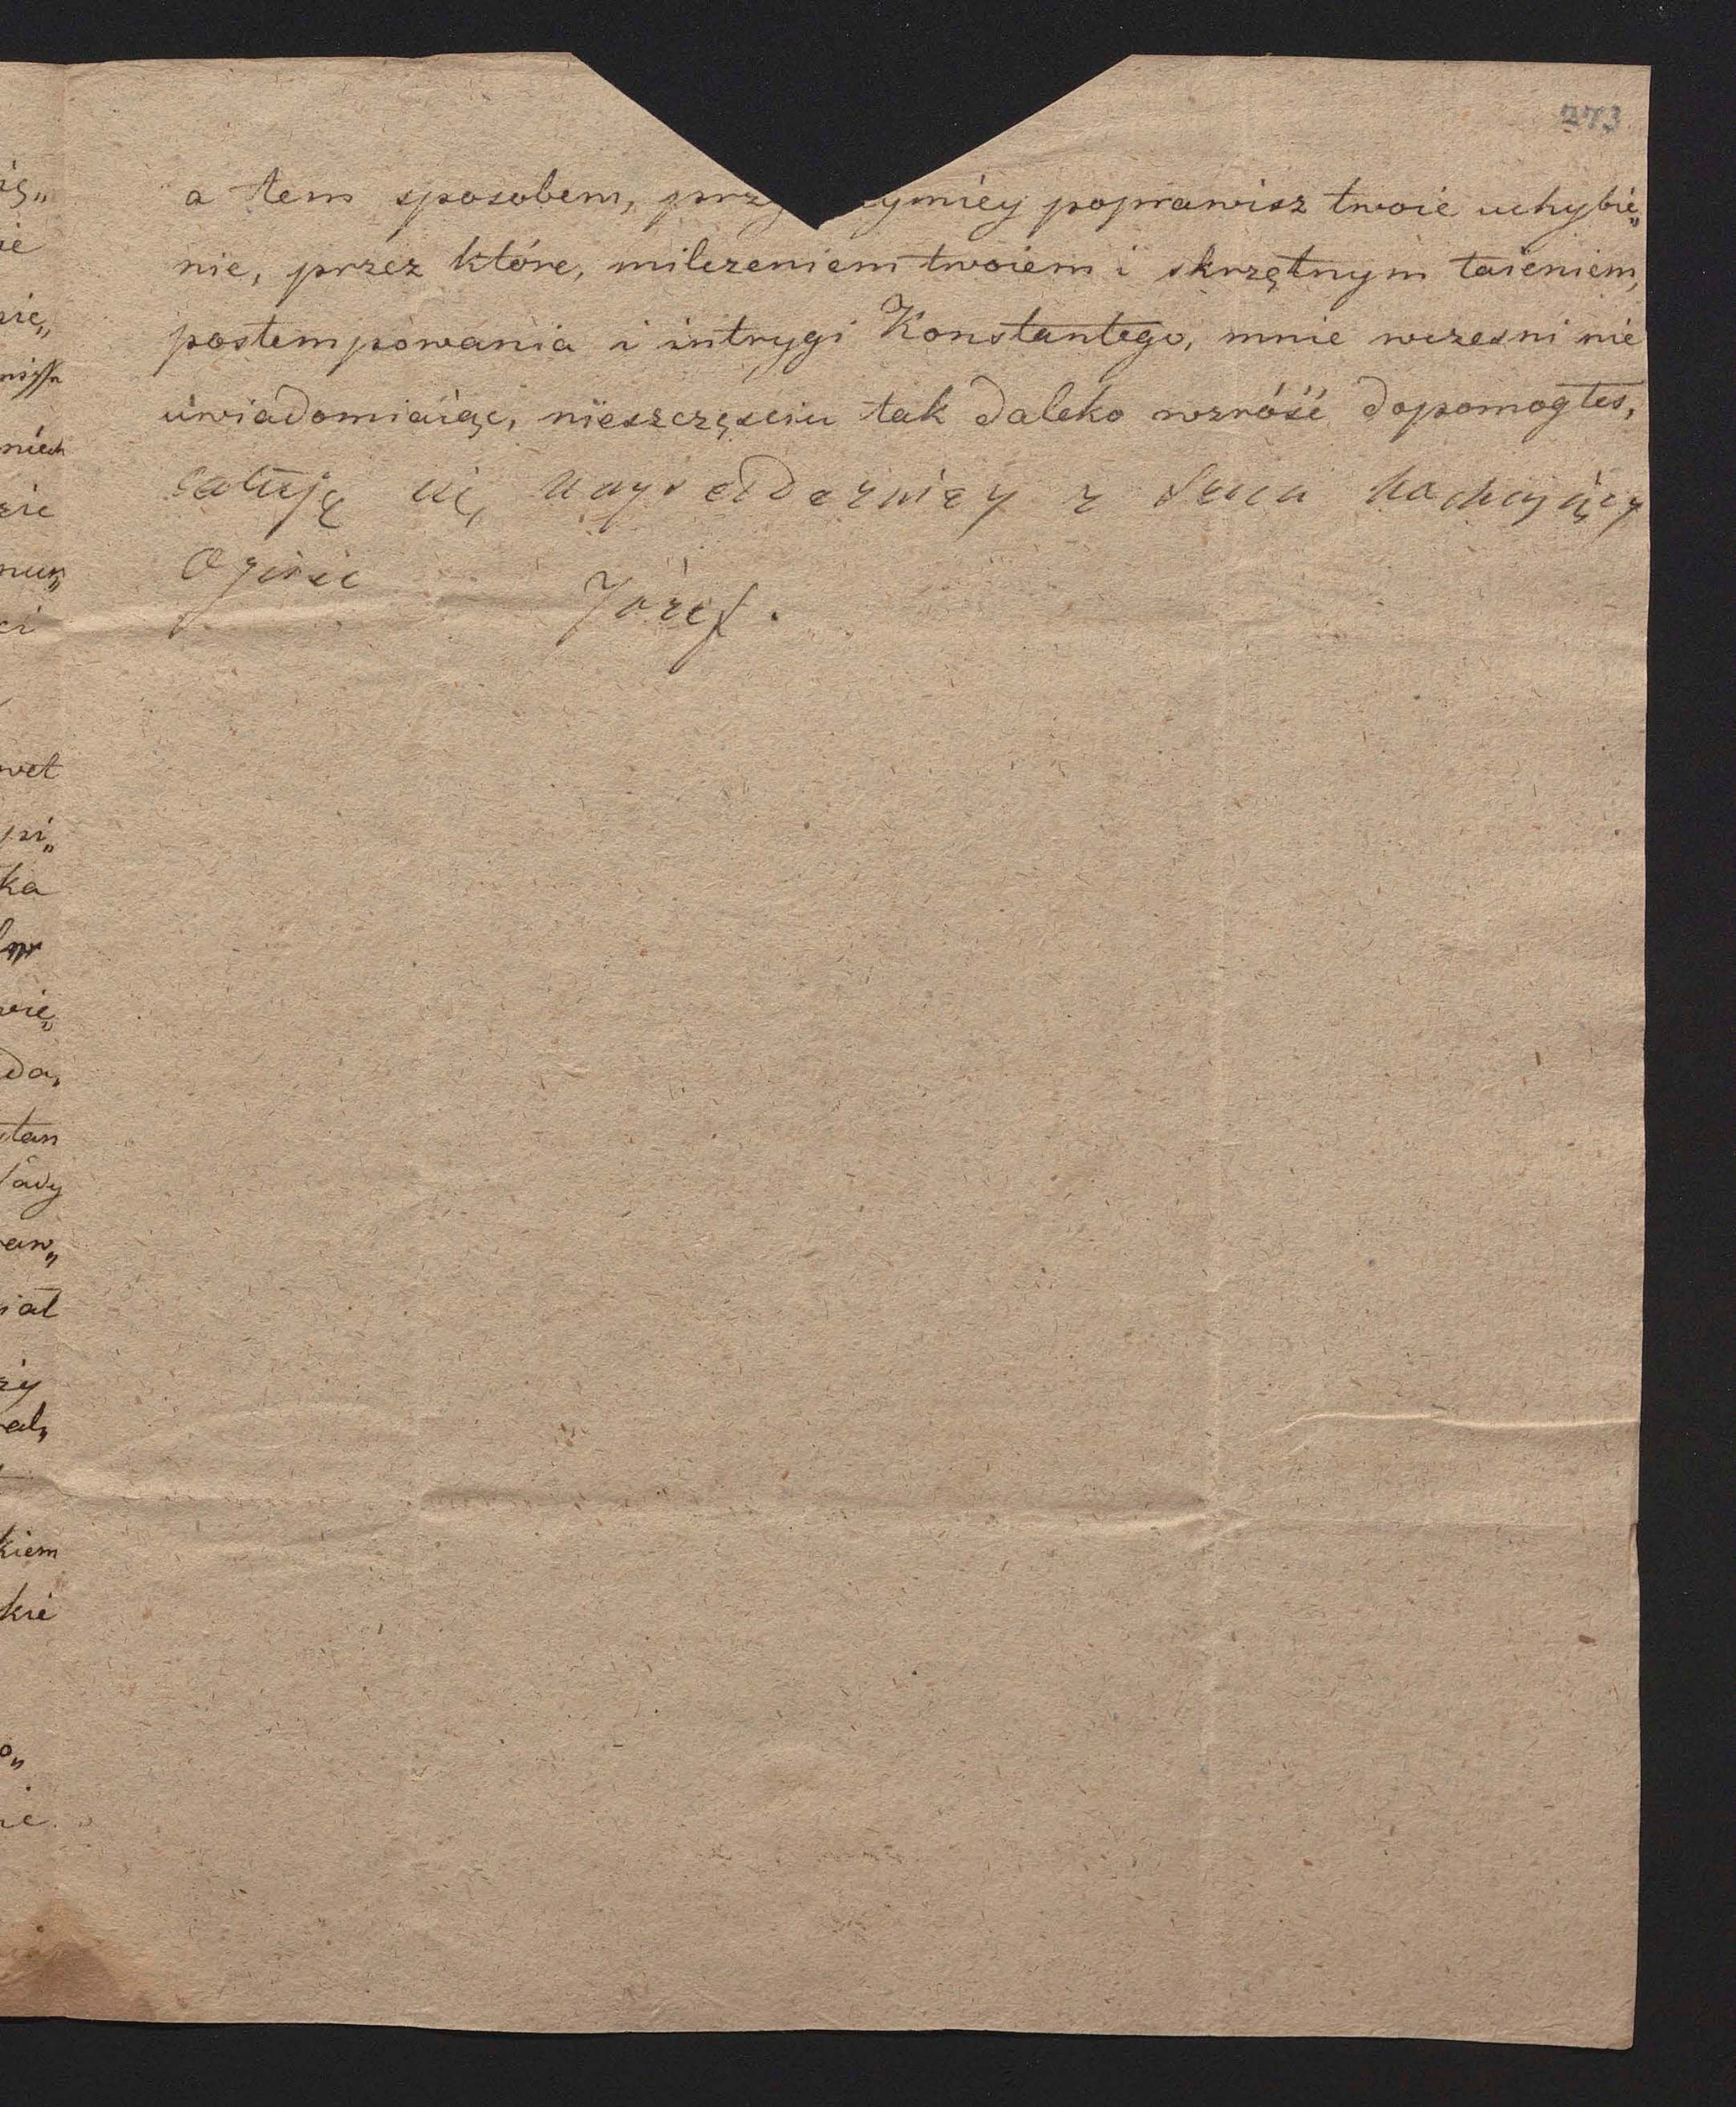 273
a tem sposobem, przy ymiéy poprawisz twoie uchybie„
nie, przez które, milczeniem twoiem i skrzętnym taieniem,
postempowania i intrygi Konstantego, mnie wczesni nie
uwiadomiaiąc, nieszczęsciu tak daleko wzróść dopomogłes,
całuję cię nayserdeczniey z serca kochaiący
Oyciec Józef.
ie
ka
da,
kiem
kie